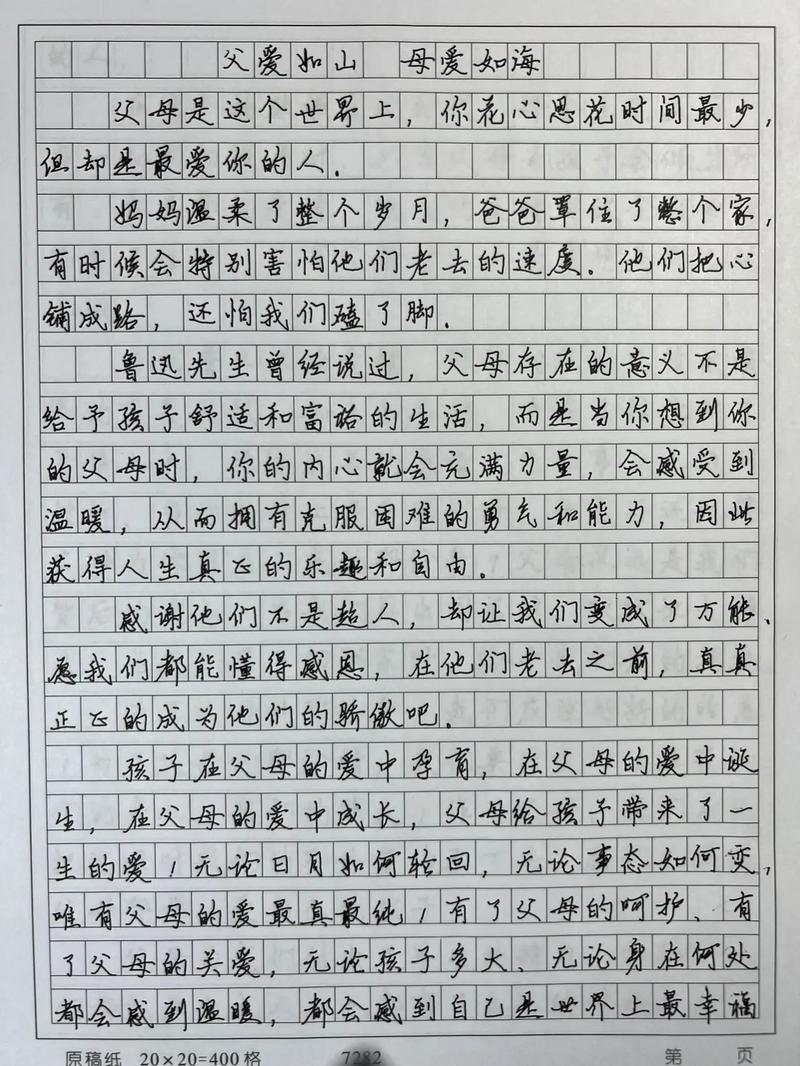 父爱如山 母爱如海
父母是这个世界上，你花心思花时间最少，
但却是最爱你的人.
妈妈温柔了整个岁月，爸爸罩住了整个家，
有时候会特别害怕他们老去的速度.他们把心
铺成路，还怕我们磕了脚.
鲁迅先生曾经说过，父母存在的意义不是
给予孩子舒适和富裕的生活，而是当你想到你
的父母时，你的内心就会充满力量，会感受到
温暖，从而拥有克服困难的勇气和能力，因此
获得人生真正的乐趣和自由。
感谢他们不是超人，却让我们变成了万能、
愿我们都能懂得感恩，在他们老去之前，真真
正正的成为他们的骄傲吧.
孩子在父母的爱中孕育，在父母的爱中诞
生，在父母的爱中成长，父母给孩子带来了一
生的爱！无论日月如何轮回，无论事态如何变，
唯有父母的爱最真最纯！有了父母的呵护、有
了父母的关爱，无论孩子多大、无论身在何处
都会感到温暖，都会感到自己是世界上最幸福
原稿纸 20×20=400格 7282 第 页